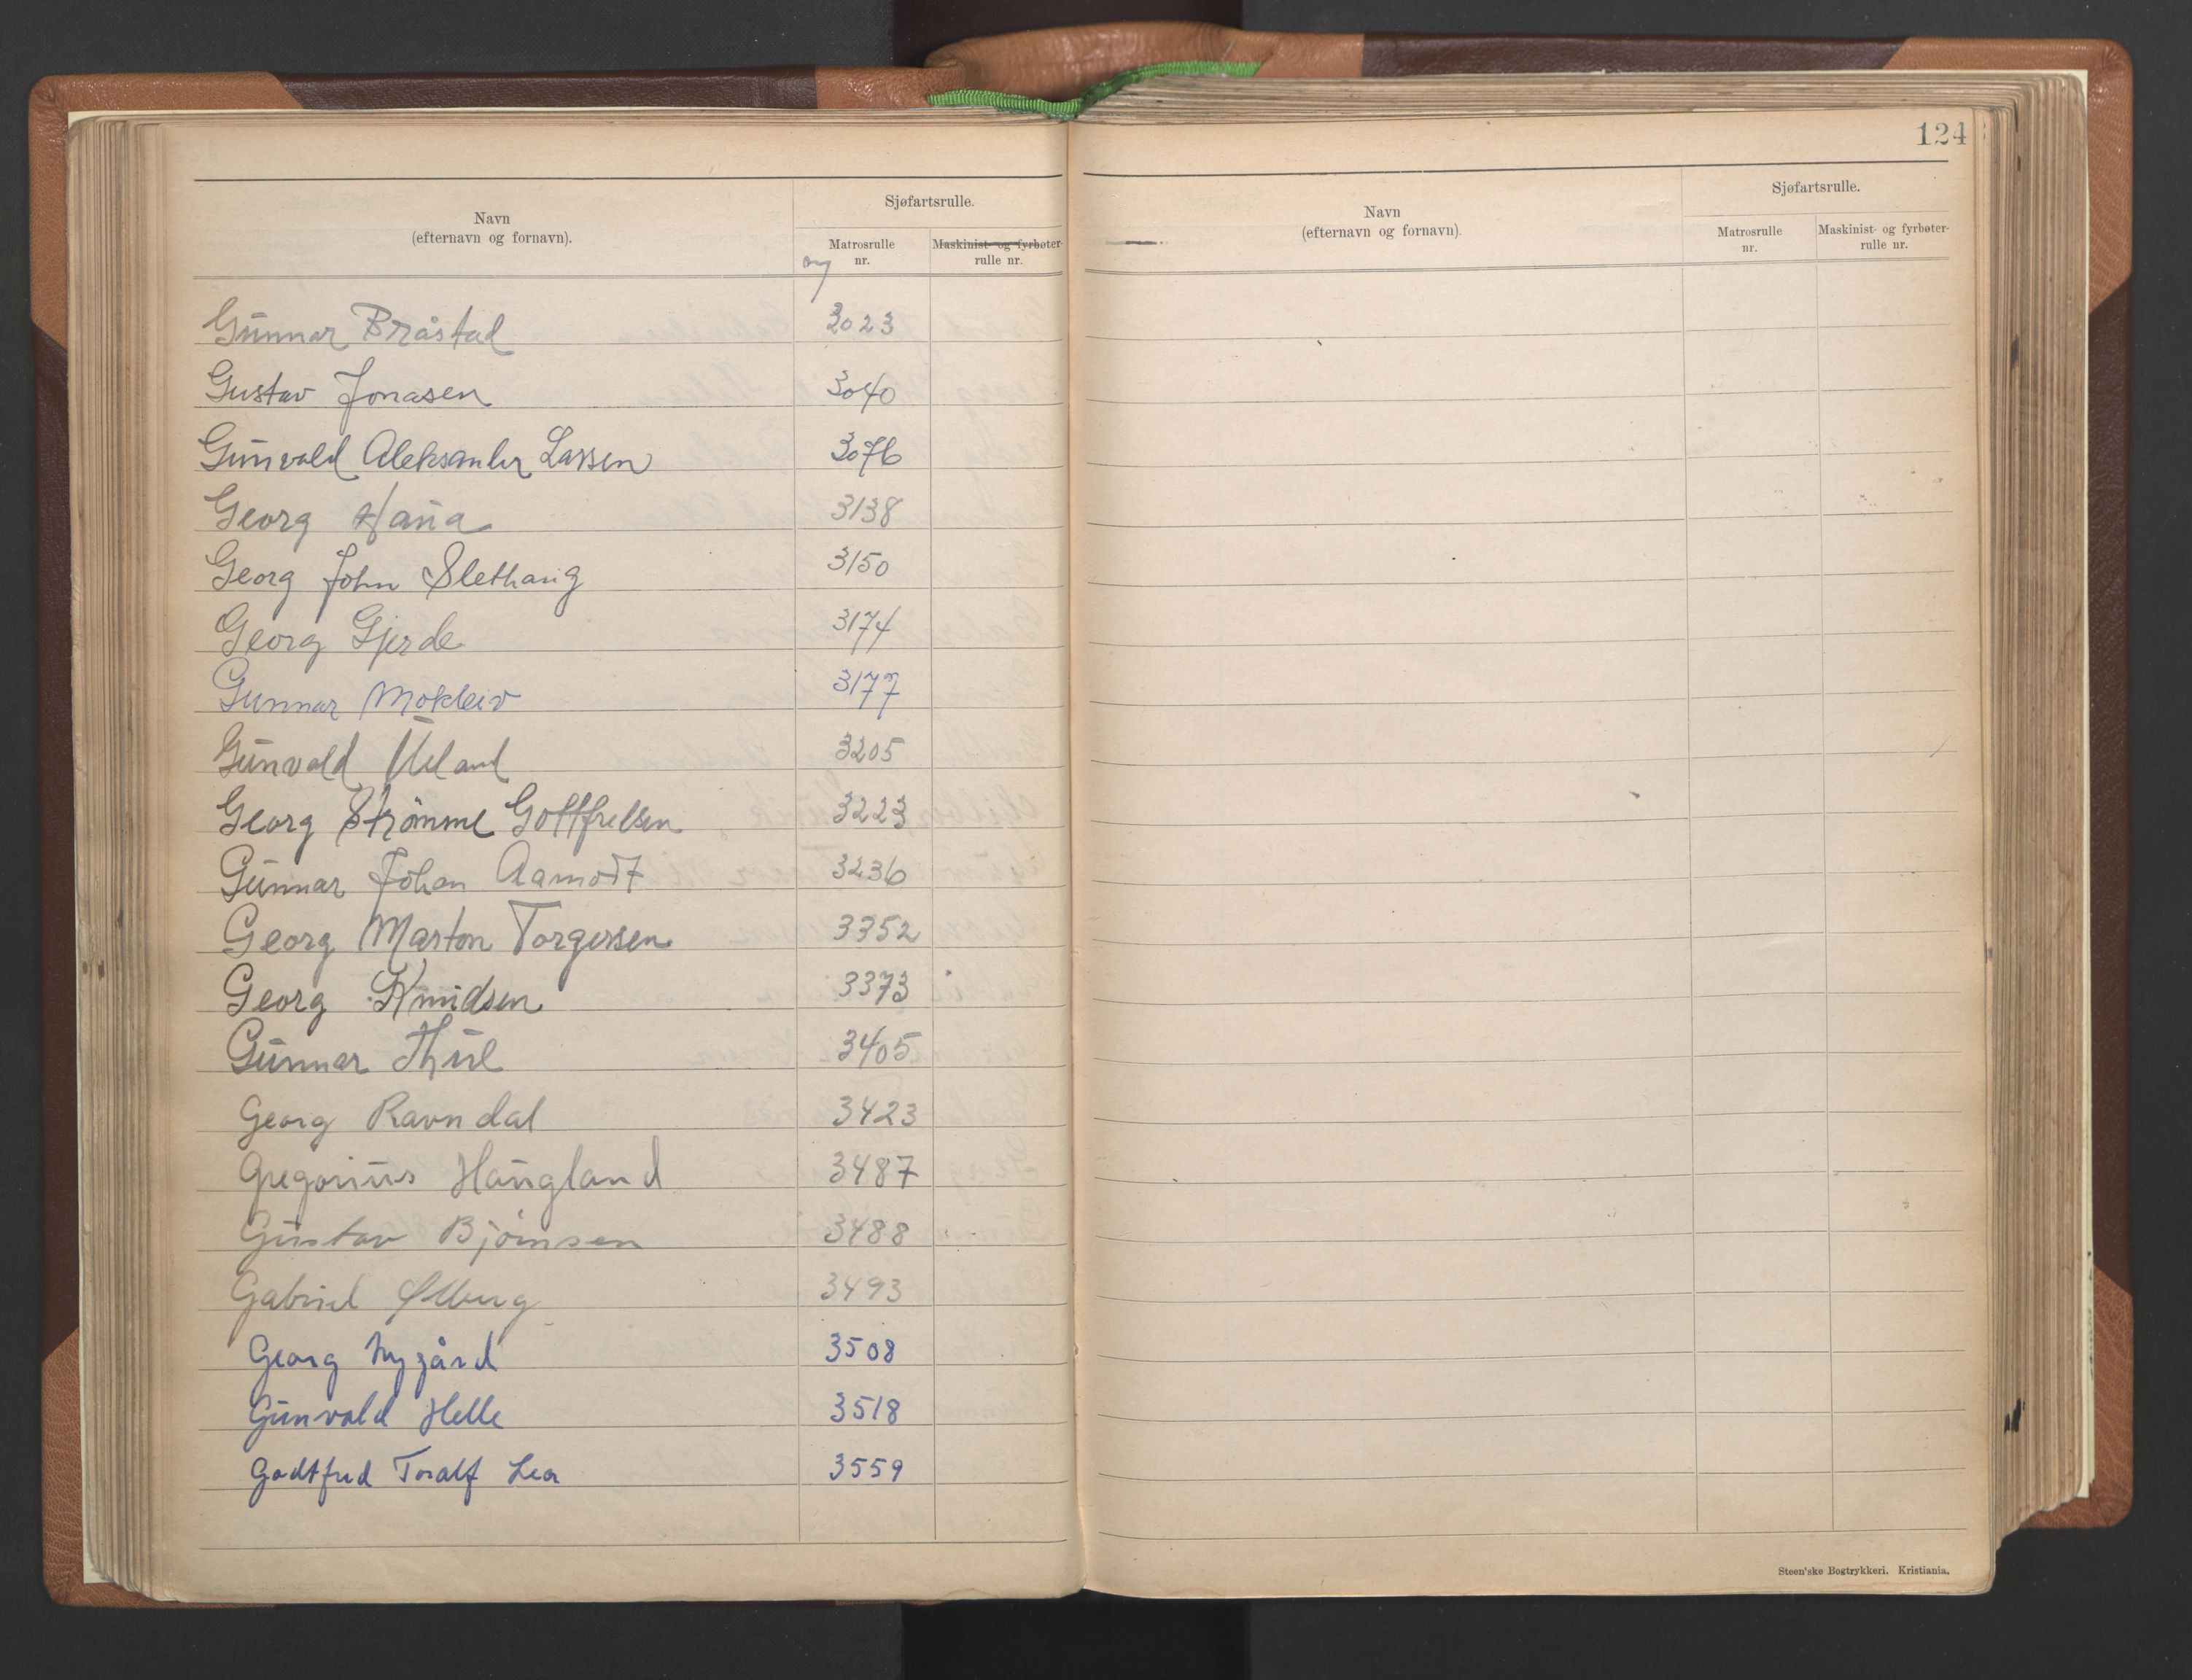 124
Sjøfartsrulle.
Navn
(efternavn og fornavn).
Matrosrulle
nr.
Maskinist- og fyrbøter-
rulle nr.
ny
Gunnar Bråstad 3023
Gustav Jonasen 3040
Gunvald Aleksander Larsen 3076
Georg Hana 3138
Georg John Slethaug 3150
Georg Gjerde 3174
Gunnar Mokleiv 3177
Gunvald Ueland 3205
Georg Strømme Gottfredsen 3223
Gunnar Johan Aamodt 3236
Georg Marton Torgersen 3352
Georg Knudsen 3373
Gunnar Thue 3405
Georg Ravndal 3423
Gregorius Haugland 3487
Gustav Bjørnsen 3488
Gabriel Ølberg 3493
Georg Nygård 3508
Gunvald Helle 3518
Godtfred Toralf Lea 3559
Sjøfartsrulle.
Navn
(efternavn og fornavn).
Matrosrulle
nr.
Maskinist- og fyrbøter-
rulle nr.
Steen'ske Bogtrykkeri. Kristiania.